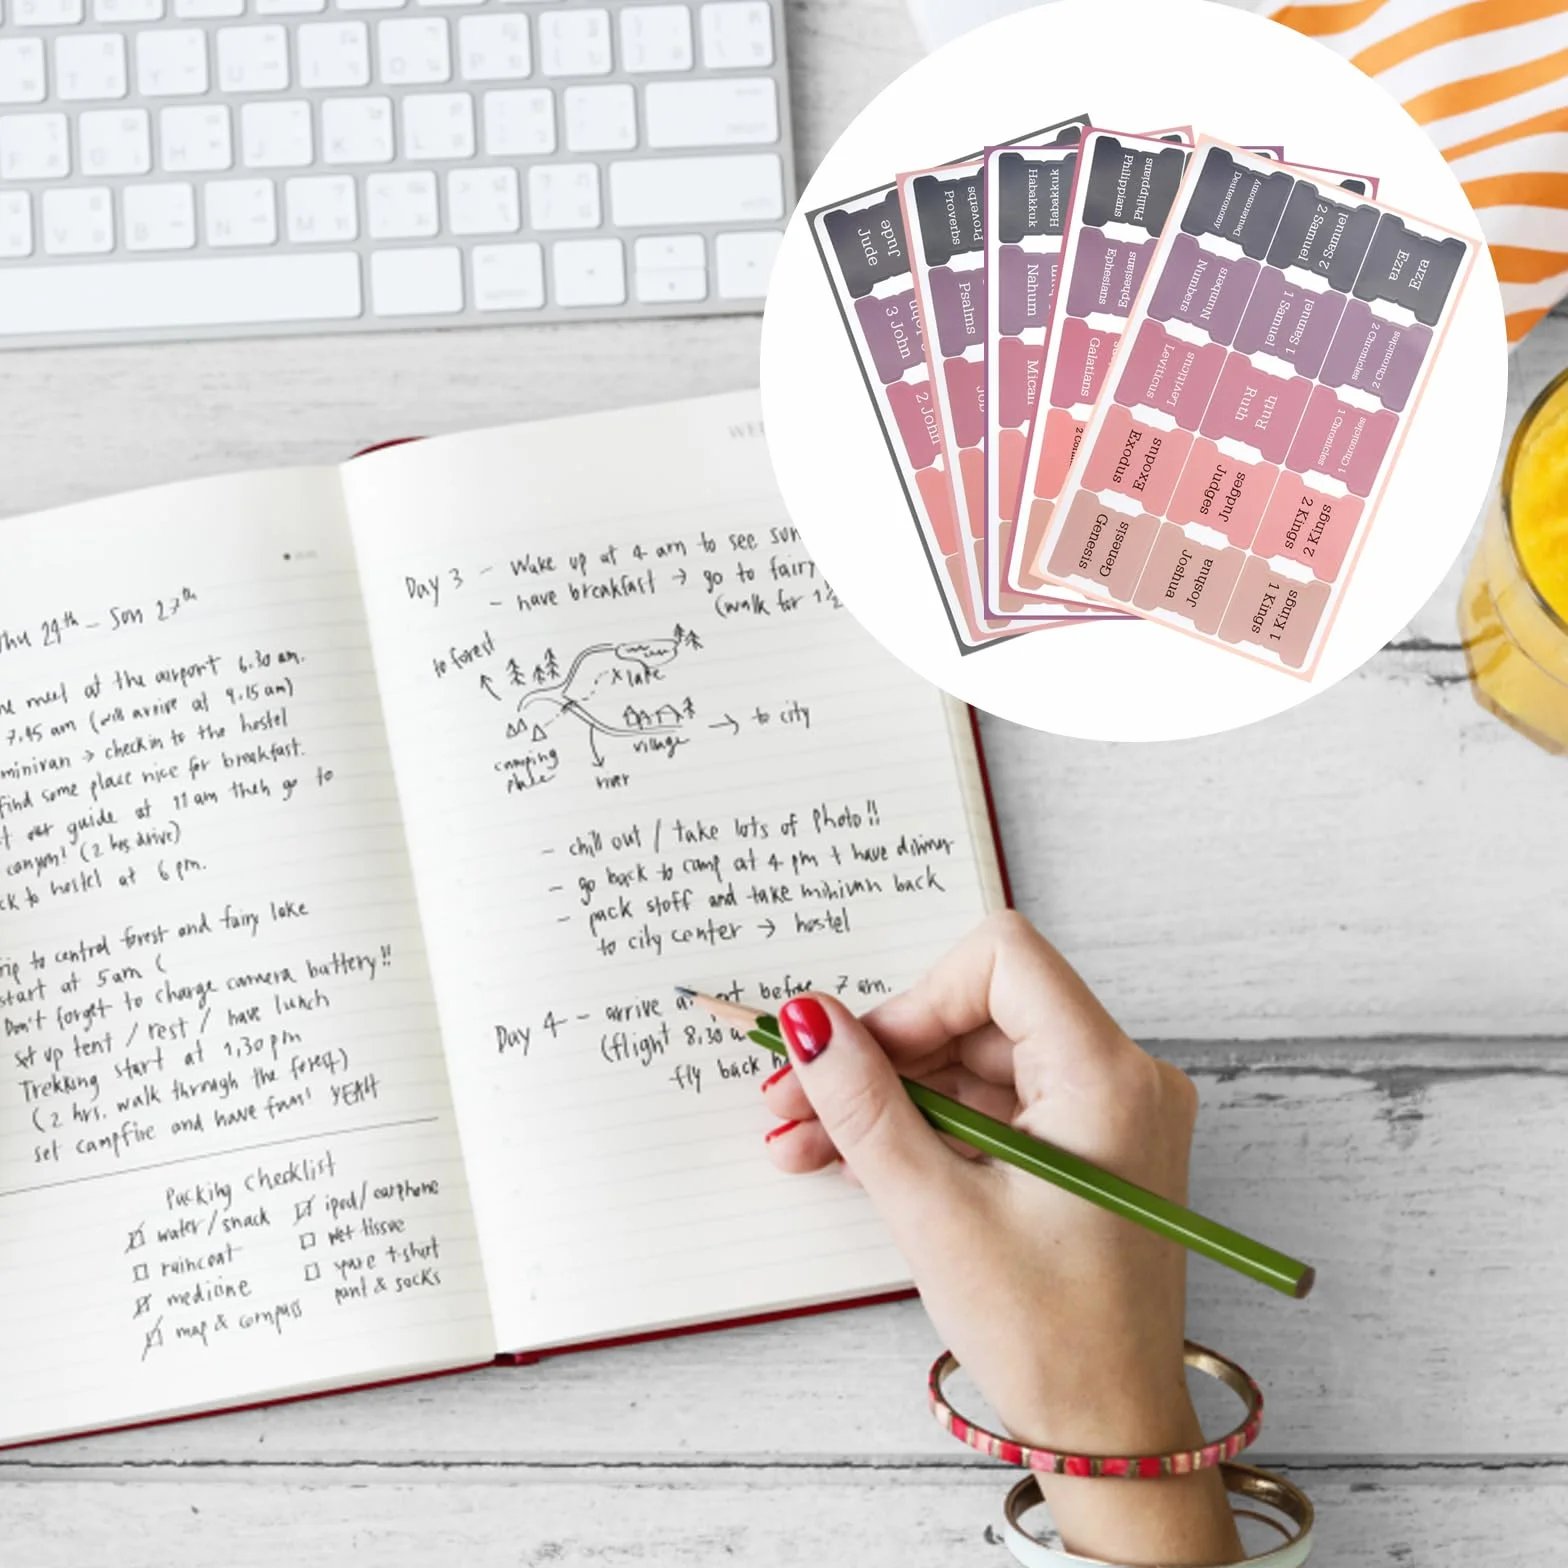 Thu 24th - Sun 27th
me meet at the airport 6.30 am.
7.45 am (will arrive at 9.15 am)
minivan → check in to the hostel
find some place nice for breakfast.
our guide at 11 am then go to
canyon! (2 hrs drive)
back to hostel at 6 pm.
trip to central forest and fairy lake
start at 5am (
Don't forget to charge camera battery!!
set up tent / rest / have lunch
Trekking start at 1,30pm
(2 hrs. walk through the forest)
set campfire and have fun! YEAH
Packing Checklist
water / snack
raincoat
medicine
map & compass
ipod / earphone
wet tissue
spare t-shirt
pant & socks
Day 3 - Wake up at 4 am to see sun
- have breakfast → go to fairy
(walk for 1 1/2
to forest
lake
camping
place
village
river
→ to city
- chill out / take lots of photo!!
- go back to camp at 4 pm + have dinner
- pack stuff and take minivan back
to city center → hostel
Day 4 - arrive before 7 am.
(flight 8.30 a
fly back
Jude
Jude
3 John
2 John
Proverbs
Proverbs
Psalms
Job
Habakkuk
Habakkuk
Nahum
Micah
Philippians
Philippians
Ephesians
Ephesians
Galatians
Deuteronomy
Deuteronomy
2 Samuel
2 Samuel
Ezra
Ezra
Numbers
Numbers
1 Samuel
1 Samuel
2 Chronicles
2 Chronicles
Leviticus
Leviticus
Ruth
Ruth
1 Chronicles
1 Chronicles
Exodus
Exodus
Judges
Judges
2 Kings
2 Kings
Genesis
Genesis
Joshua
Joshua
1 Kings
1 Kings